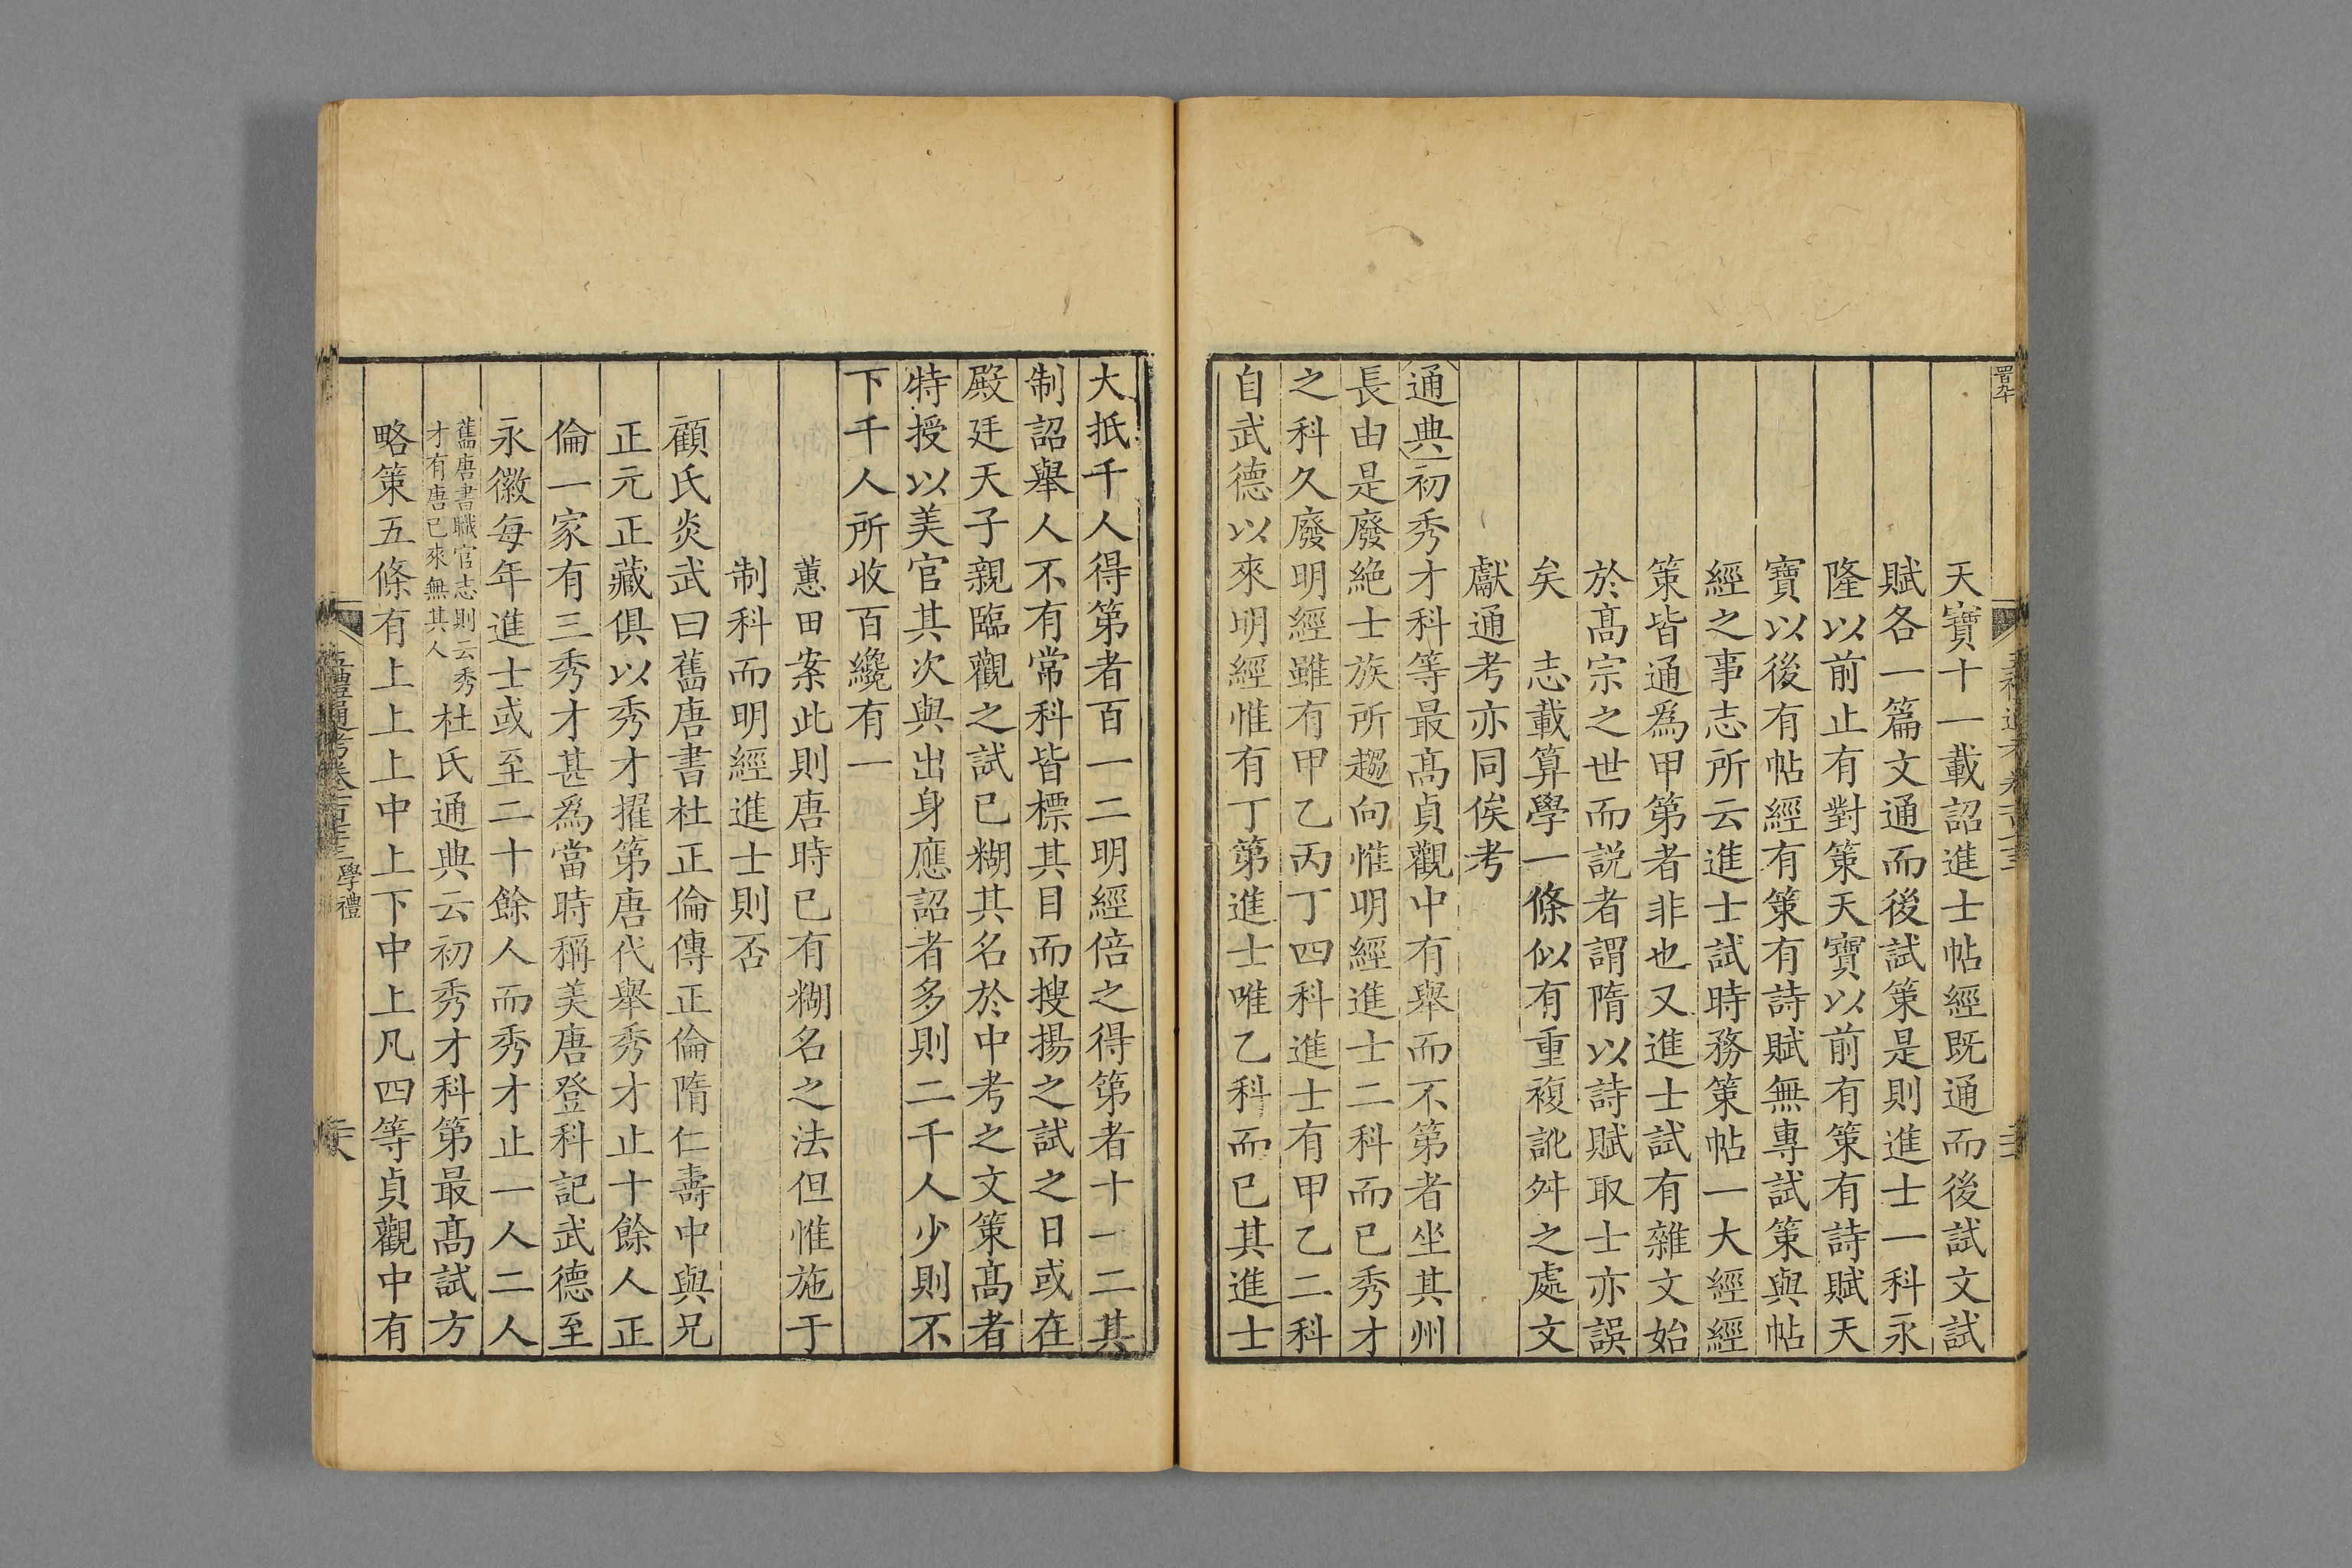 天寶十一載詔進士帖經既通而後試文試
賦各一篇文通而後試策是則進士一科永
隆以前止有對策天寶以前有策有詩賦天
寶以後有帖經有策有詩賦無專試策與帖
經之事志所云進士試時務策帖一大經經
策皆通爲甲第者非也又進士試有雜文始
於髙宗之世而説者謂隋以詩賦取士亦誤
矣　志載算學一條似有重複訛舛之處文
獻通考亦同俟考
通典初秀才科等最髙貞觀中有舉而不第者坐其州
長由是廢絶士族所趨向惟明經進士二科而已秀才
之科久廢明經雖有甲乙丙丁四科進士有甲乙二科
自武德以來明經惟有丁第進士唯乙科而已其進士
大抵千人得第者百一二明經倍之得第者十一二其
制詔舉人不有常科皆標其目而搜揚之試之日或在
殿廷天子親臨觀之試已糊其名於中考之文策髙者
特授以美官其次與出身應詔者多則二千人少則不
下千人所收百纔有一
蕙田案此則唐時已有糊名之法但惟施于
制科而明經進士則否
顧氏炎武曰舊唐書杜正倫傳正倫隋仁壽中與兄
正元正藏俱以秀才擢第唐代舉秀才止十餘人正
倫一家有三秀才甚爲當時稱美唐登科記武德至
永徽每年進士或至二十餘人而秀才止一人二人
舊唐書職官志則云秀
才有唐已來無其人
杜氏通典云初秀才科第最髙試方
略策五條有上上上中上下中上凡四等貞觀中有
五禮通考卷一百七十三
學禮